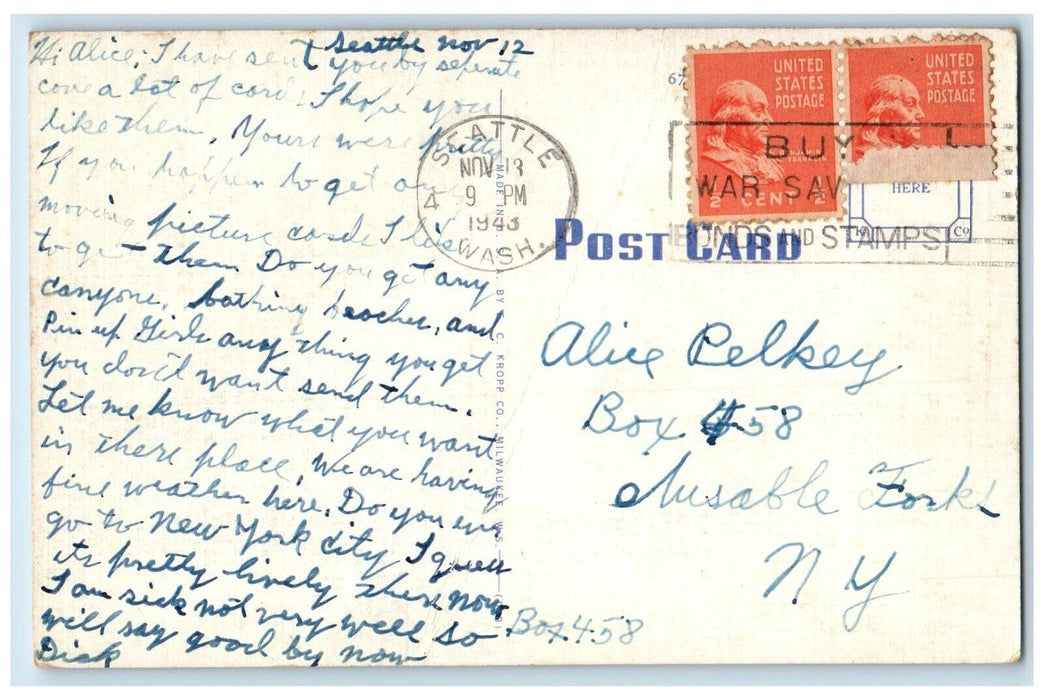 Seattle Nov 12
Hi Alice; I have sent you by seperate
cove a lot of cards I hope you
like them, Yours were pretty
If you happen to get any
moving picture cards I like
to get them Do you get any
canyons, bathing beaches, and
Pin up Girls any thing you get
you don't want send them.
Let me know what you want
in there place. We are having
fine weather here. Do you ever
go to New York City I guess
its pretty lively there now
I am sick not very well so
will say good by now
Dick
Box 458
SEATTLE
NOV 13
9 PM
1943
4 WASH.
BUY
WAR SAV
BONDS AND STAMPS!
UNITED
STATES
POSTAGE
BENJAMIN
FRANKLIN
½ CENT ½
UNITED
STATES
POSTAGE
HERE
K Co
POST CARD
MADE IN U.S.A. BY E. C. KROPP CO., MILWAUKEE, WIS.
Alice Pelkey
Box 458
Ausable Forks
N Y